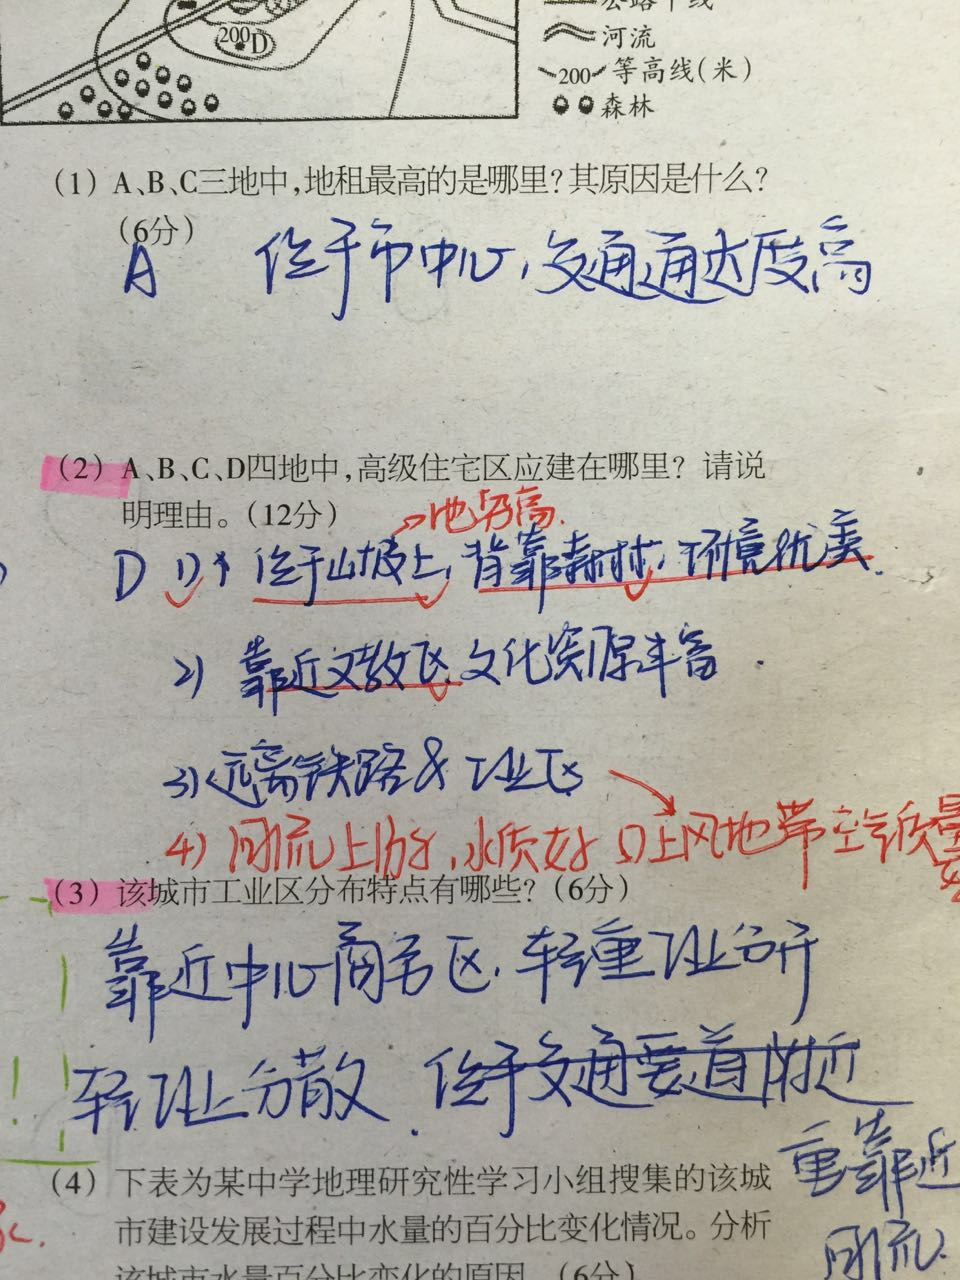 200 D
公路干线
河流
200 等高线(米)
森林
(1) A、B、C三地中,地租最高的是哪里?其原因是什么?
(6分)
A 位于市中心,交通通达度高
(2) A、B、C、D四地中,高级住宅区应建在哪里? 请说
明理由。(12分)
→地势高.
D 1) 位于山坡上,背靠森林,环境优美.
2) 靠近文教区 文化资源丰富.
3) 远离铁路&工业区
4) 河流上游,水质好 上风地带 空气质量好
(3) 该城市工业区分布特点有哪些? (6分)
靠近中心商务区,轻重工业分开
轻工业分散. 位于交通要道附近
重靠近
河流.
(4) 下表为某中学地理研究性学习小组搜集的该城
市建设发展过程中水量的百分比变化情况。分析
该城市水量百分比变化的原因。(6分)